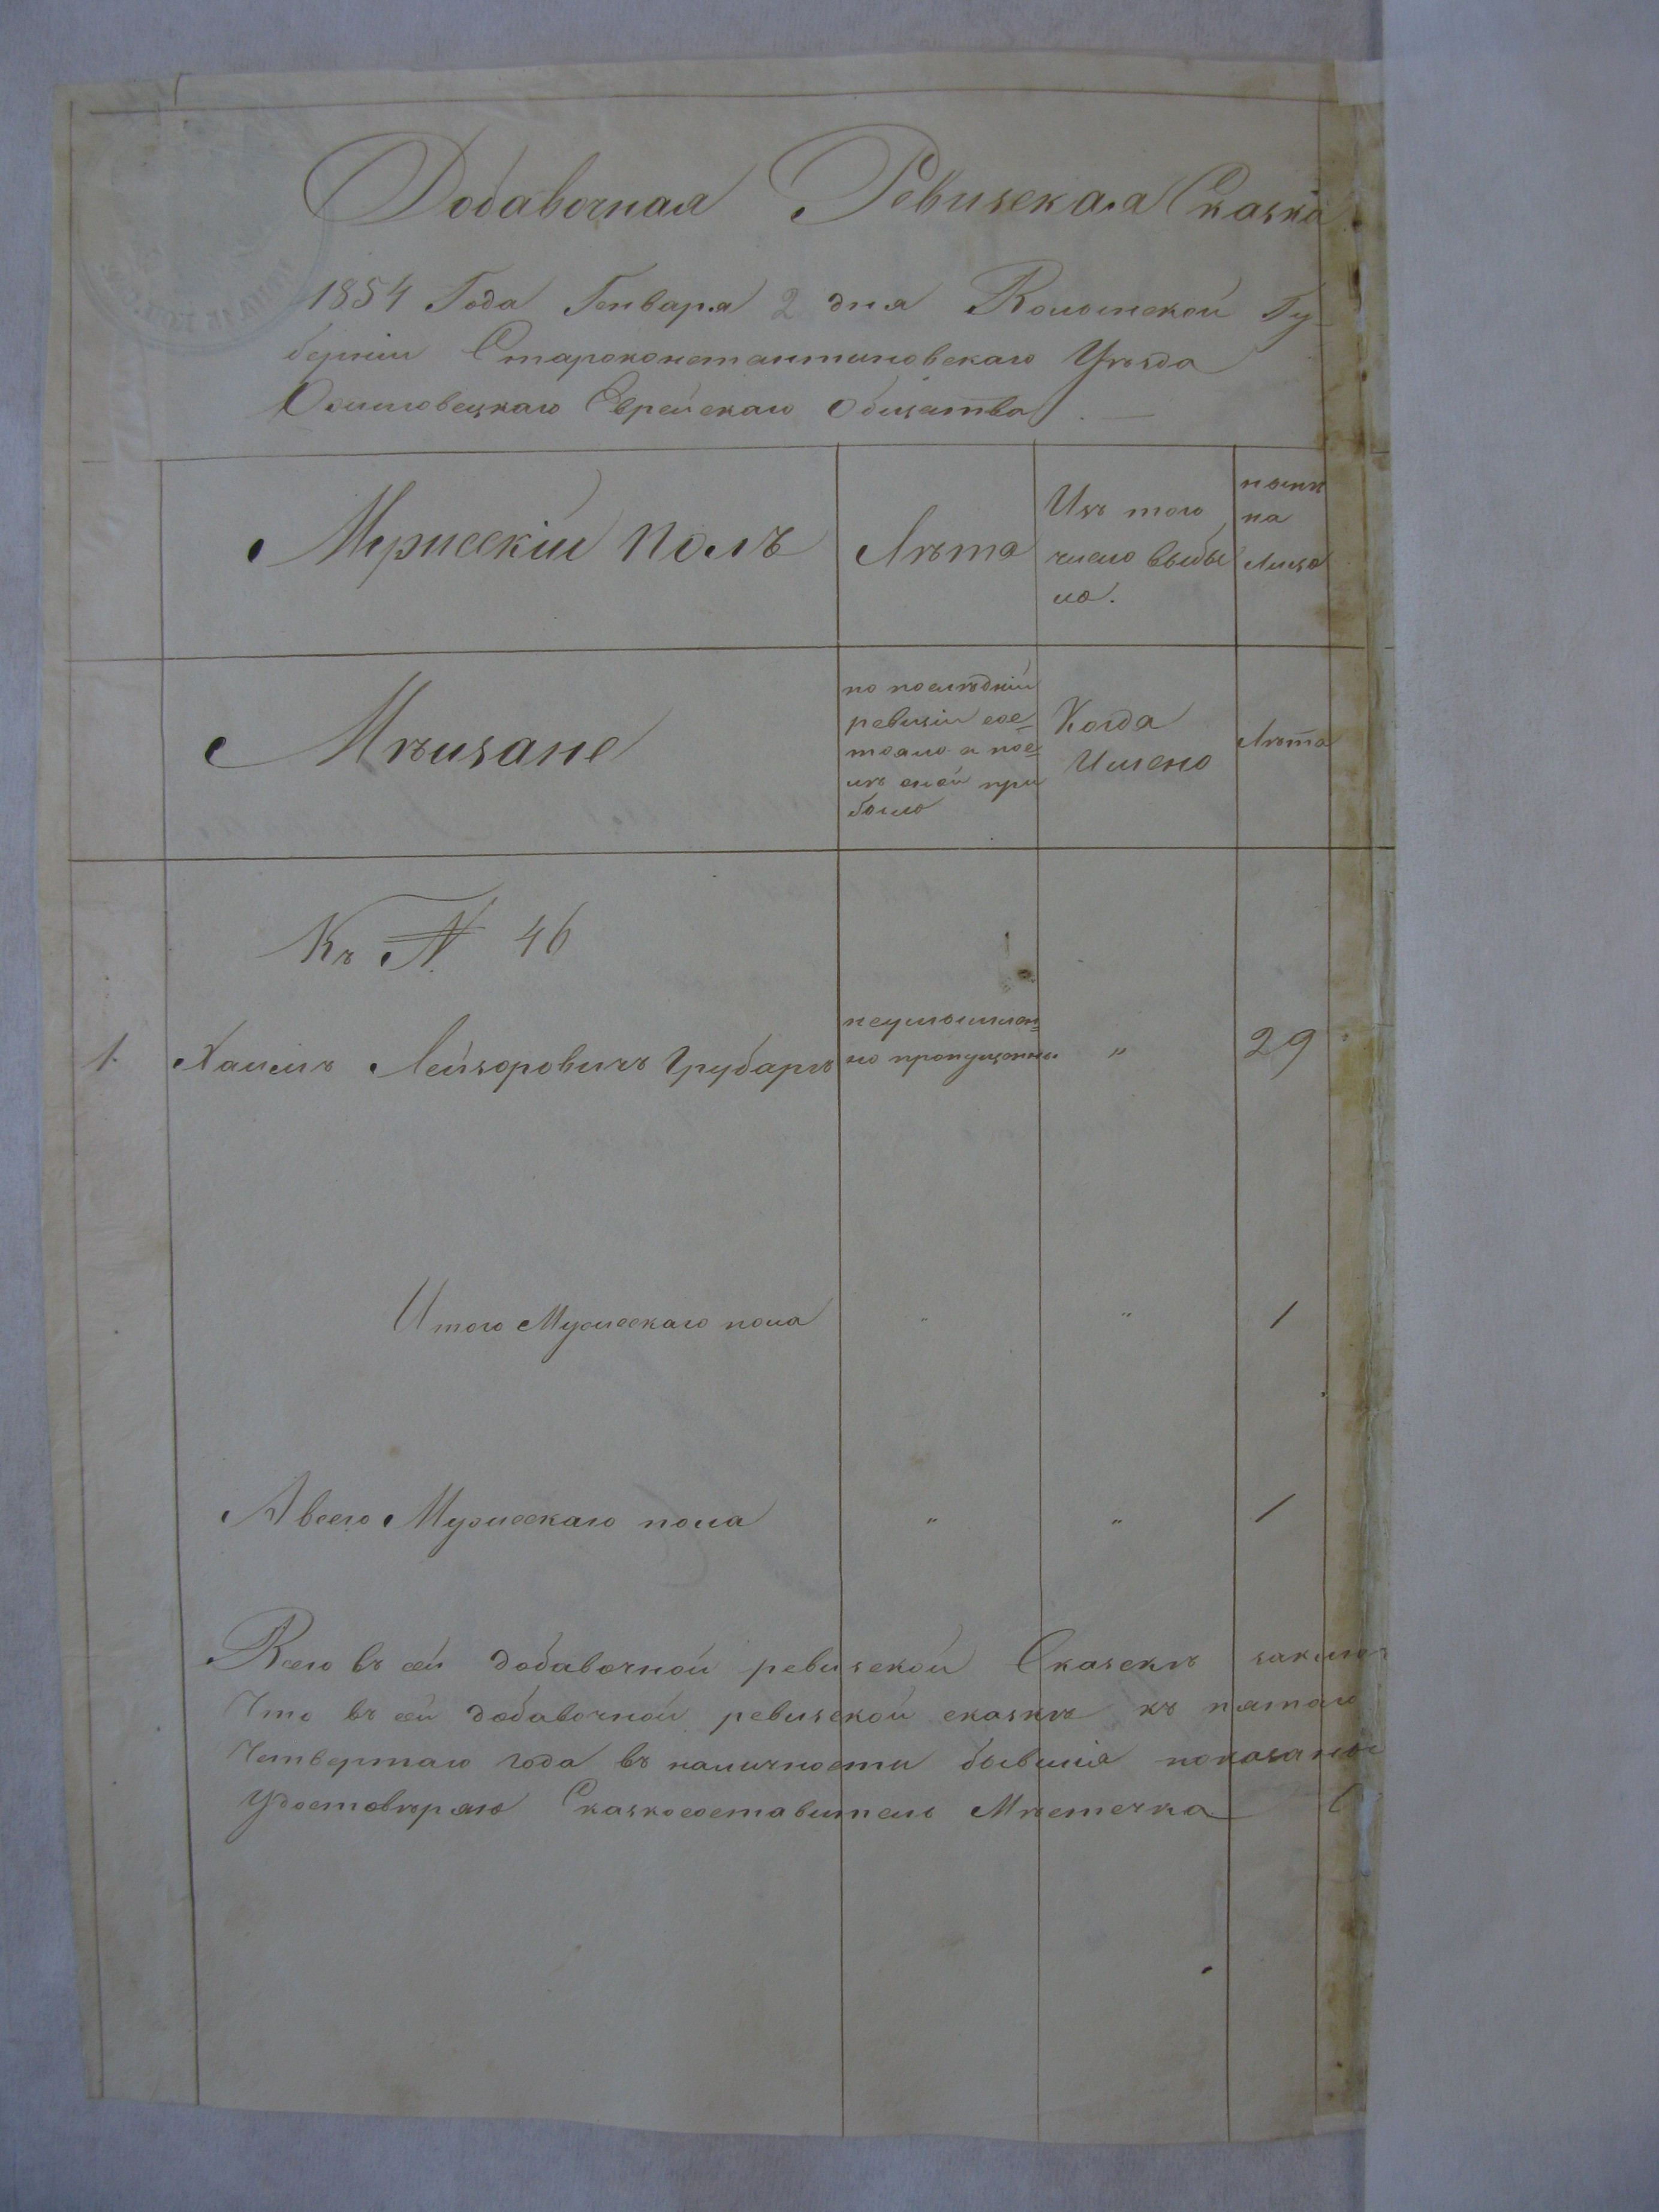 Добавочная Ревизская Сказка
1854 Года Генваря 2 дня Волынской Гу-
берніи Староконстантиновскаго Уѣзда
Еврейскаго Общества
Мужескій полъ
Лѣта
Изъ того
число выбы
ло.
ныне
на
лицо
Мѣщане
по послѣдній
ревизіи сос-
тояло а пос-
лѣ оной при
было
Когда
Имено
Лѣта
Къ № 46
1. Хаимъ Лейзоровичъ Грубаръ
неумышлен-
но пропущенны
" 29
Итого Мужескаго пола " " 1
А всего Мужескаго пола " " 1
Всего въ сей добавочной ревизской Сказекѣ заключ
Что въ сей добавочной ревизской сказкѣ къ пятаго
Четвертаго года въ наличности бывшіе показаны
Удостовѣряю Сказкосоставитель Мѣстечка